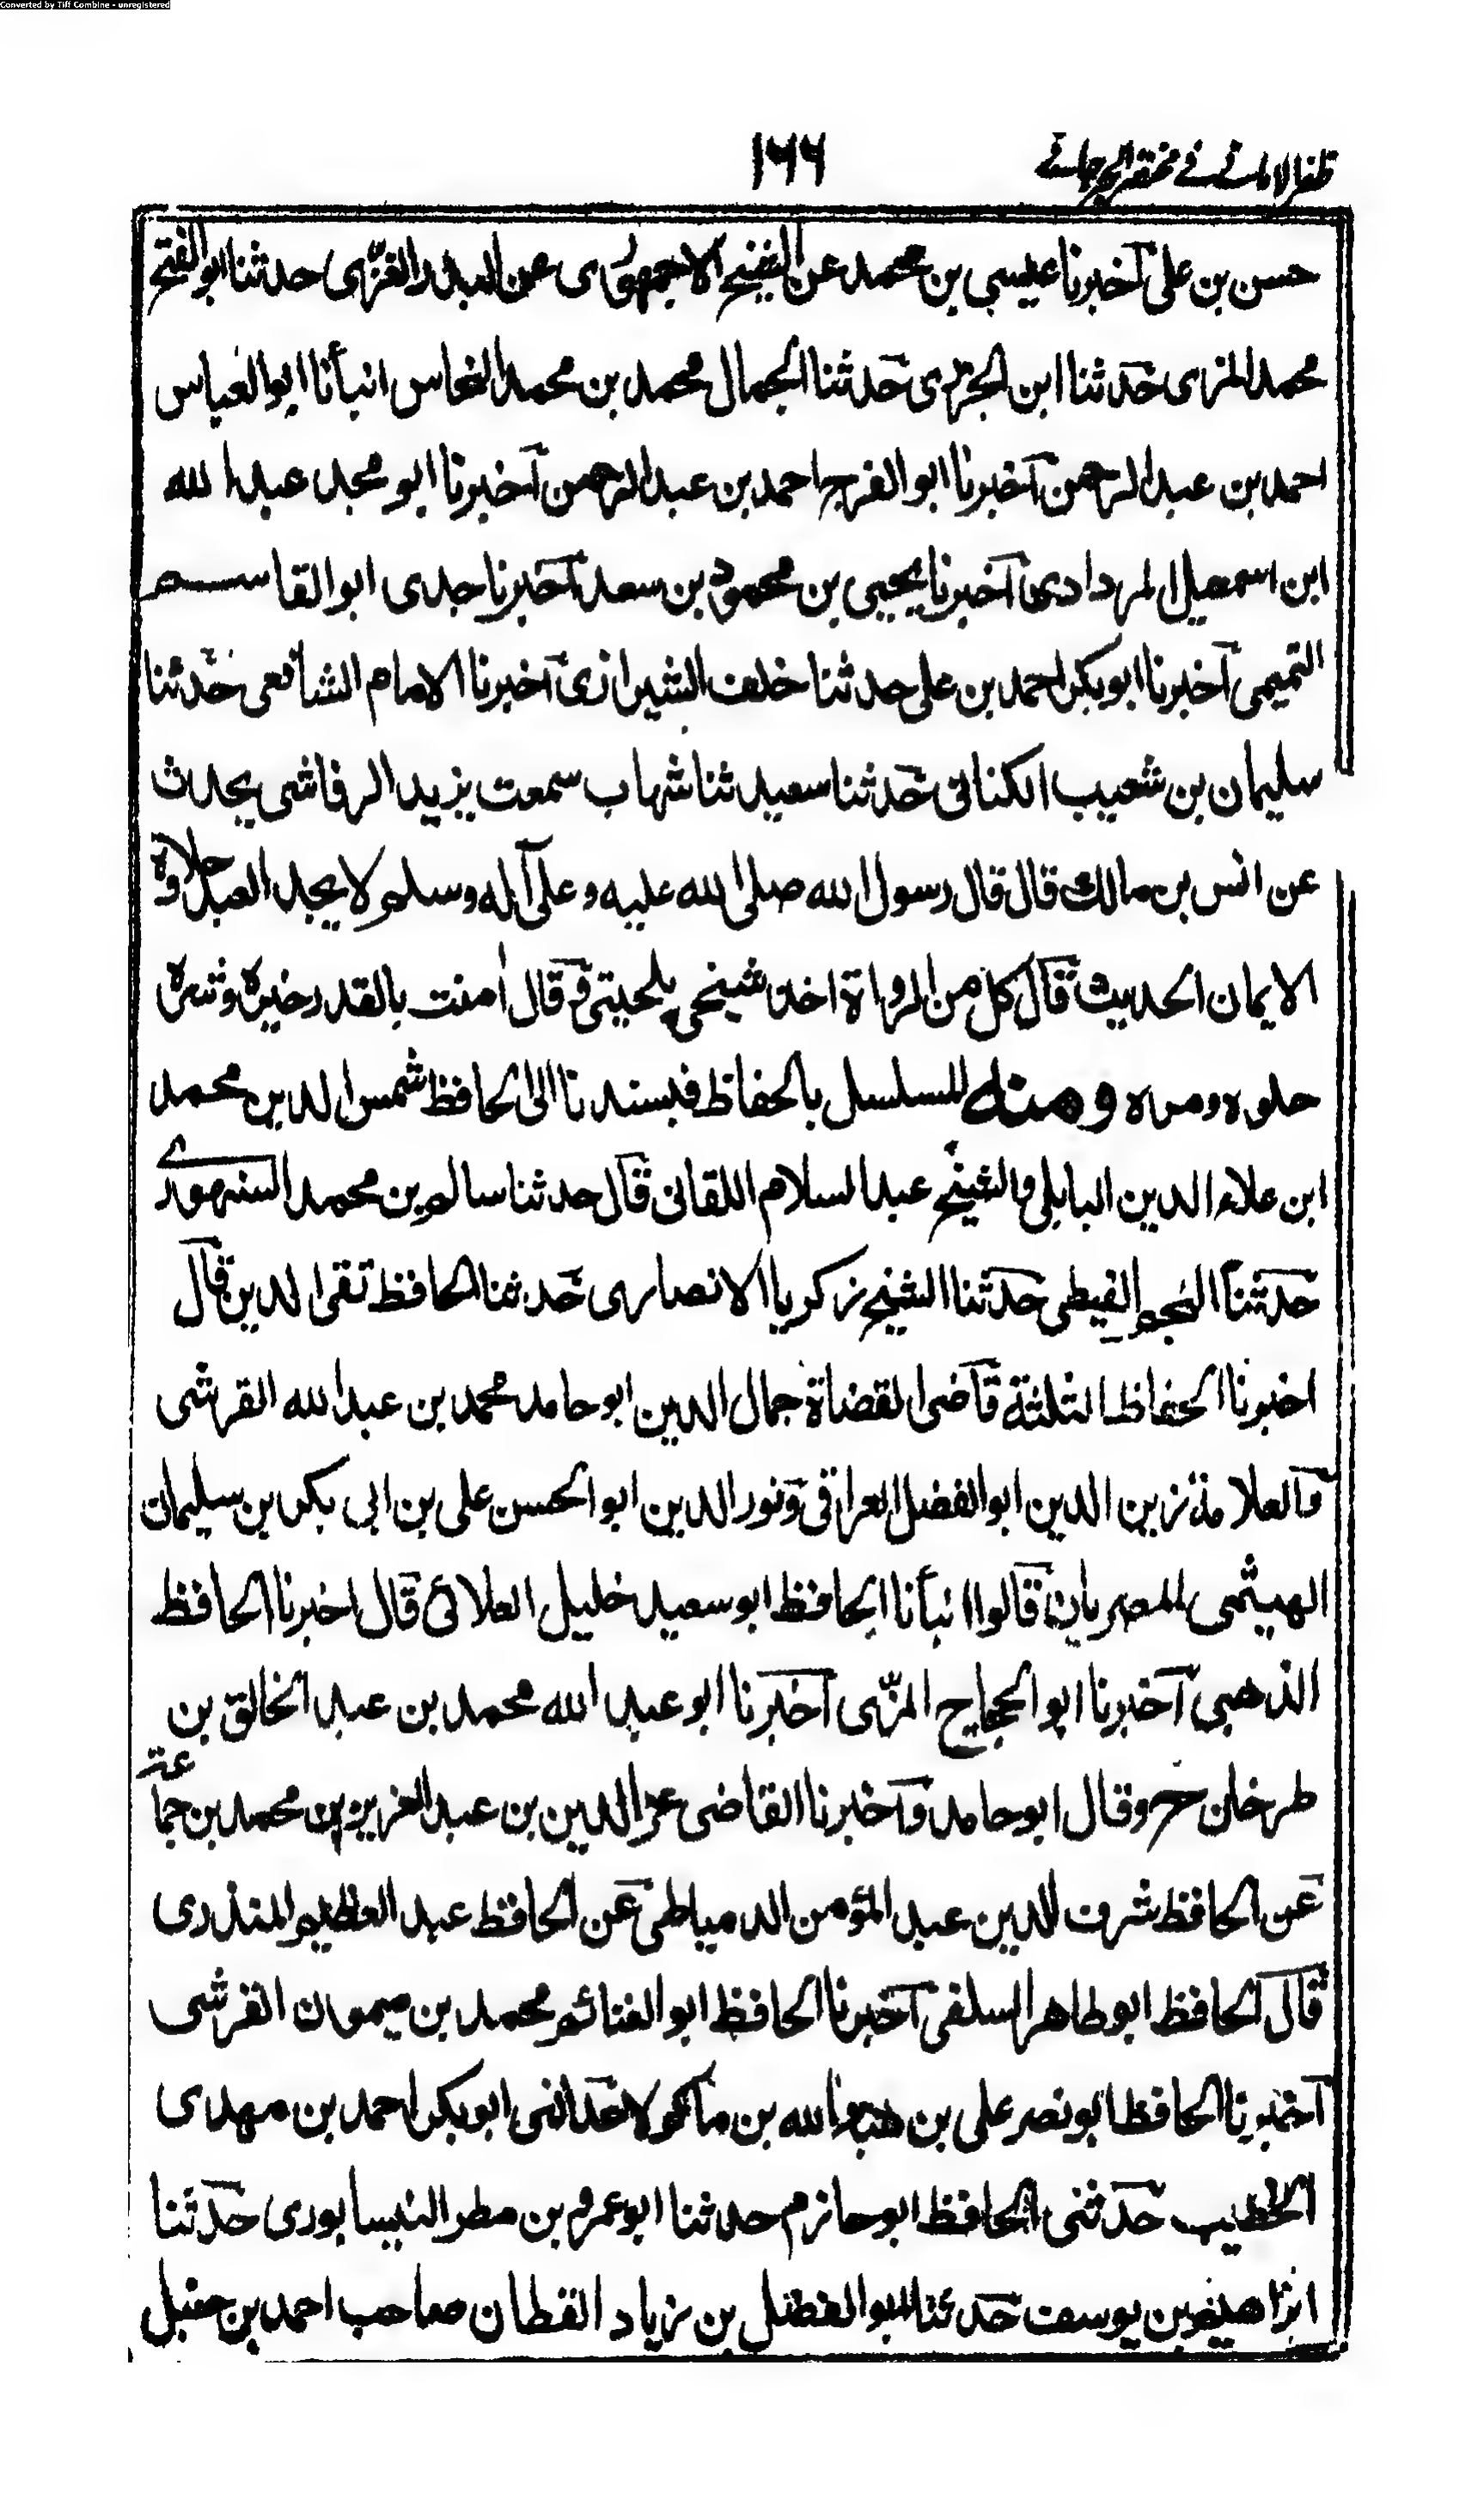 Converted by Tiff Combine - unregistered
ظفر الاماني في مختصر الجرجاني
١٦٦
حسن بن علی آخبرنا عیسی بن محمد عن الشیخ الاجهوری عن البدر الغزّی حدثنا ابو الفتح
محمد المزی حدثنا ابن الجزری حدثنا الجمال محمد بن محمد النحاس انبأنا ابو العباس
احمد بن عبد الرحمن آخبرنا ابو الفرج احمد بن عبد الرحمن آخبرنا ابو محمد عبد الله
ابن اسمعیل المردادی آخبرنا یحیی بن محمود بن سعد آخبرنا جدی ابو القاسم
التمیمی آخبرنا ابو بکر احمد بن علی حدثنا خلف الشیرازی آخبرنا الامام الشافعی حدثنا
سلیمان بن شعیب الکنانی حدثنا سعید ثنا شهاب سمعت یزید الرفاشی یحدث
عن انس بن مالك قال قال رسول الله صلی الله علیه وعلی آله وسلم لا یجد العبد حلاوة
الایمان الحدیث قال کل من الرواة اخذ شیخی بلحیتی وقال اٰمنت بالقدر خیره وشره
حلوه ومره ومنه المسلسل بالحفاظ فبسندنا الی الحافظ شمس الدین محمد
ابن علاء الدین البابلی والشیخ عبد السلام اللقانی قال حدثنا سالم بن محمد السنهوری
حدثنا النجم الغیطی حدثنا الشیخ زکریا الانصاری حدثنا الحافظ تقی الدین قال
اخبرنا الحفاظ الثلثة قاضی القضاة جمال الدین ابو حامد محمد بن عبد الله القرشی
والعلامة زین الدین ابو الفضل العراقی ونور الدین ابو الحسن علی بن ابی بکر بن سلیمان
الهیثمی المصریان قالوا انبأنا الحافظ ابو سعید خلیل العلائی قال اخبرنا الحافظ
الذهبی آخبرنا ابو الحجاج المزّی آخبرنا ابو عبد الله محمد بن عبد الخالق بن
طرخان ح وقال ابو حامد وآخبرنا القاضی عز الدین بن عبد العزیز بن محمد بن جماعة
عن الحافظ شرف الدین عبد المؤمن الدمیاطی عن الحافظ عبد العظیم المنذری
قال الحافظ ابو طاهر السلفی آخبرنا الحافظ ابو الغنائم محمد بن میمون القرشی
آخبرنا الحافظ ابو نصر علی بن هبة الله بن ماکولا حدثنی ابو بکر احمد بن مهدی
الخطیب حدثنی الحافظ ابو حازم حدثنا ابو عمرو بن مطر النیسابوری حدثنا
ابراهیم بن یوسف حدثنا ابو الفضل بن زیاد القطان صاحب احمد بن حنبل